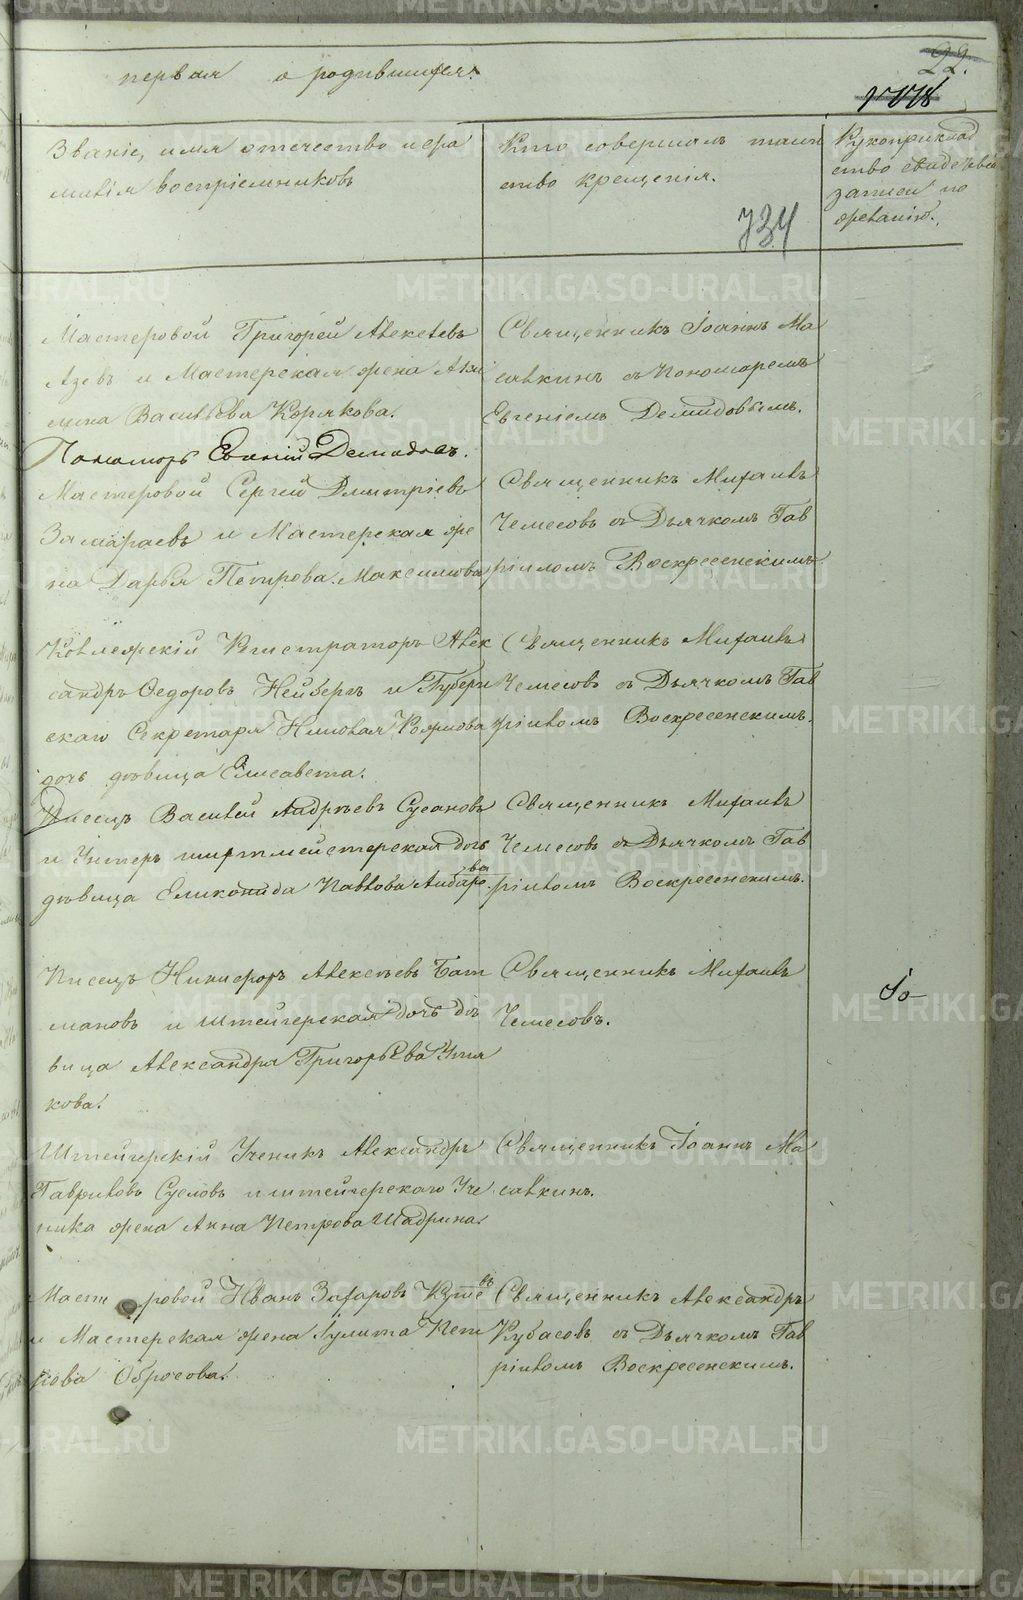 первая о родившихся.
22.
Званіе, имя отечество и фа
милія воспріемниковъ
Кто совершалъ таин
ство крещенія.
Рукоприклад
ство свидетелей
записи по
желанію.
734
Мастеровой Григорей Алексеевъ
Азевъ и Мастерская жена
Васильева Корякова.
Священникъ Іоаннъ Ма
салкинъ съ Пономаремъ
Евгеніемъ Демидовымъ.
Пономарь Евгеній Демидовъ.
Мастеровой Сергей Дмитріевъ
Замараевъ и Мастерская же
на Дарья Петрова Максимова
Священникъ Михаилъ
Чемесовъ съ Дьячкомъ Гав
ріиломъ Воскресенскимъ.
Коллежскій Регистраторъ Алек
сандръ Федоровъ Нейбергъ и Губерн
скаго Секретаря
дочь девица Елисавета.
Священникъ Михаилъ
Чемесовъ съ Дьячкомъ Гав
ріиломъ Воскресенскимъ.
Писецъ Василей Андреевъ Сусановъ
и Унтеръ шихтмейстерская дочь
девица Еликонида Павлова
Священникъ Михаилъ
Чемесовъ съ Дьячкомъ Гав
ріиломъ Воскресенскимъ.
Писецъ Никифоръ Алексеевъ Бат
мановъ и штейгерская дочь де
вица Александра Григорьева
кова.
Священникъ Михаилъ
Чемесовъ.
Штейгерскій Ученикъ Александръ
Гавриловъ Сусловъ и штейгерскаго Уче
ника жена Анна Петрова Шадрина.
Священникъ Іоаннъ Ма
салкинъ.
Мастеровой Иванъ Захаровъ
и Мастерская жена Іулита Пет
рова Обросова.
Священникъ Александръ
Кубасовъ съ Дьячкомъ Гав
ріиломъ Воскресенскимъ.
METRIKI.GASO-URAL.RU